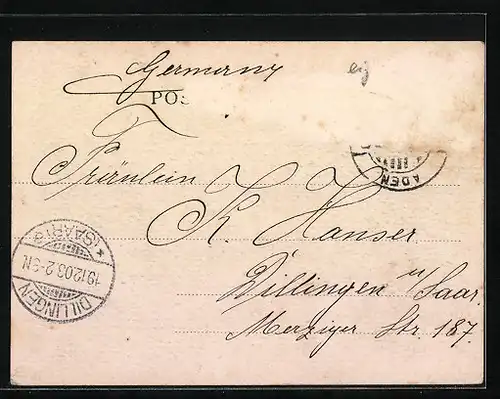 Germany
POS
ADEN
Fräulein
K. Hanser
Dillingen a/Saar.
Merziger Str. 187.
DILLINGEN
19.12.03.2-3N.
* (SAAR) *